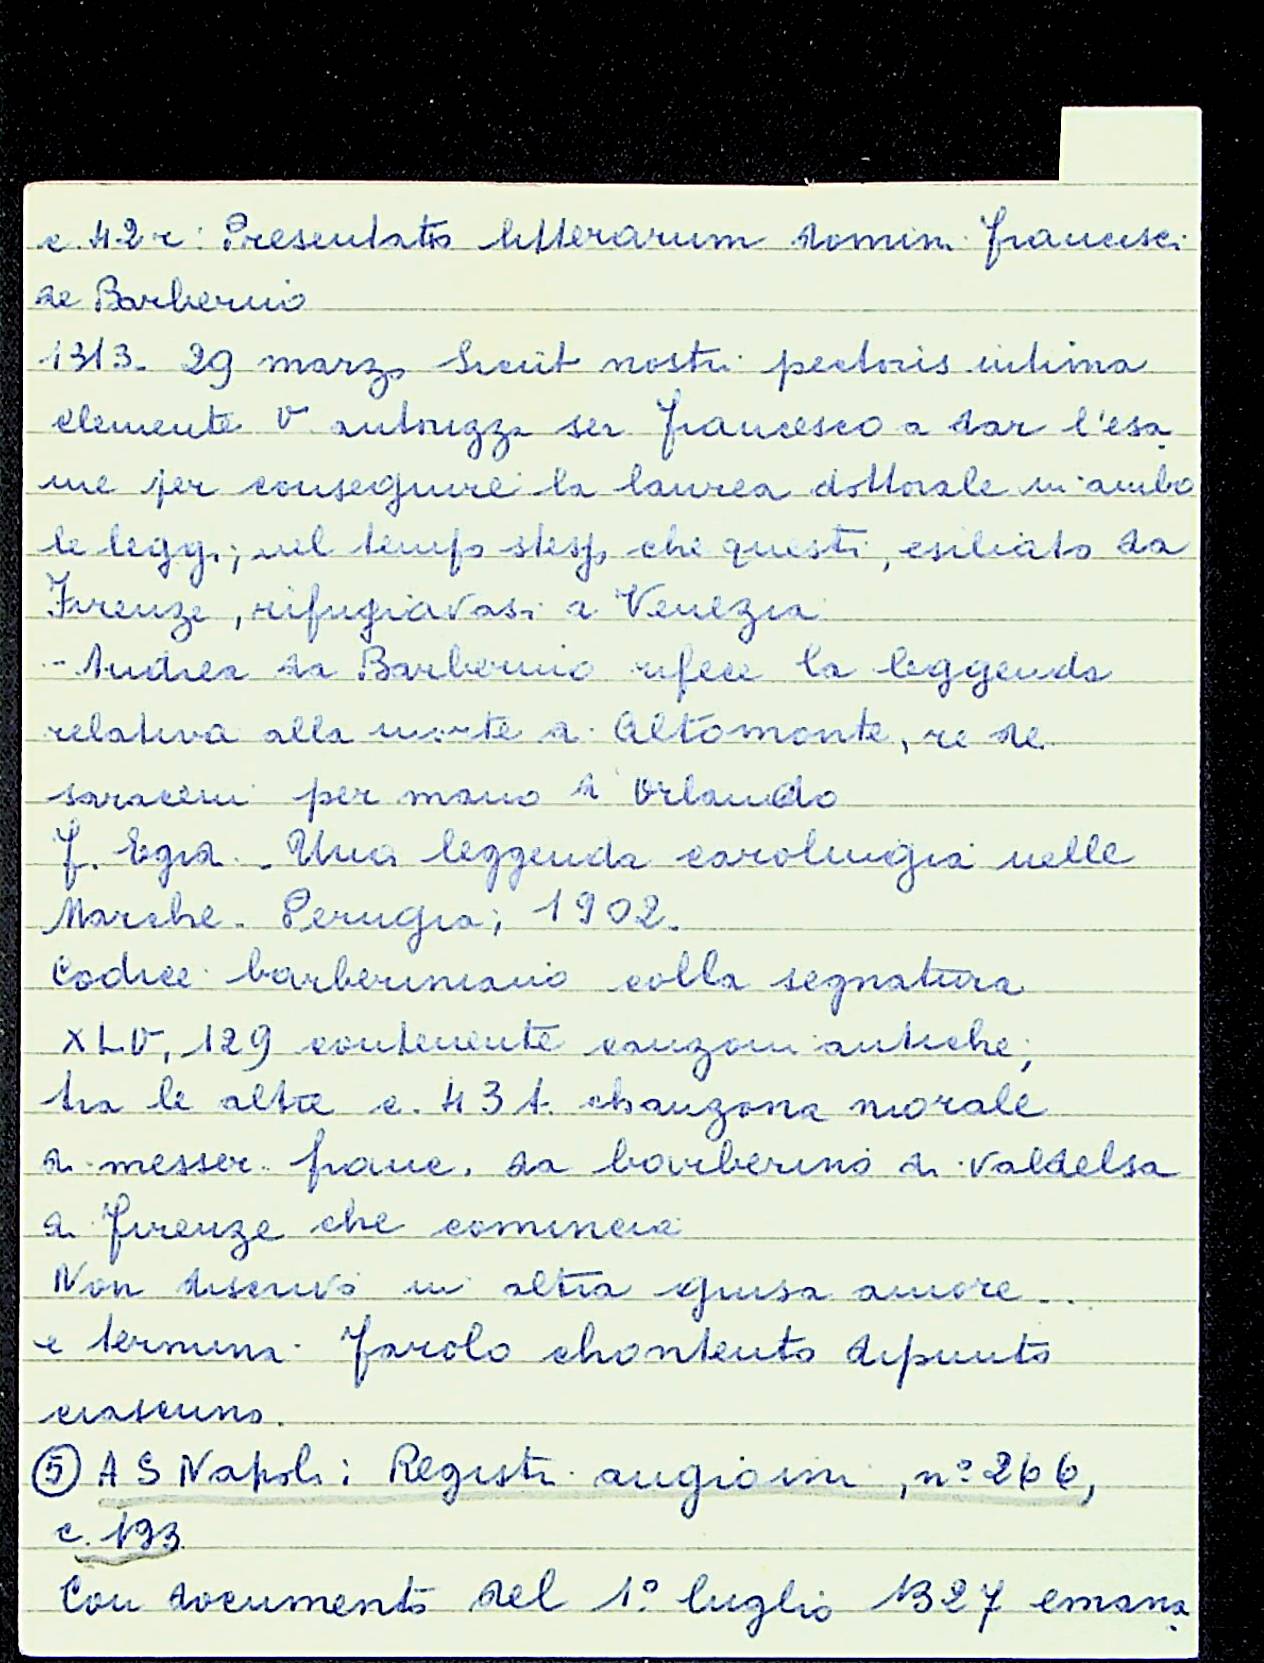 c. 42 r: Presentatio litterarum domini Francisci
de Barberino
1313. 29 marzo Sicut nostri pectoris intima
Clemente V autorizza ser Francesco a dar l'esa
me per conseguire la laurea dottorale in ambo
le leggi; nel tempo stesso che questi, esiliato da
Firenze, rifugiavasi a Venezia
- Andrea da Barberino rifece la leggenda
relativa alla morte di Altomonte, re dei
saraceni per mano di Orlando
F. Egidi - Una leggenda carolingia nelle
Marche. Perugia, 1902.
Codice barberiniano colla segnatura
XLV, 129 contenente canzoni antiche;
tra le altre c. 43 t. chanzona morale
di messer franc. da barberino di valdelsa
di firenze che comincia
Non discrivo in altra guisa amore...
e termina Farolo chontento dipunto
ciascuno.
⑤ A S Napoli: Registri angioini, n° 266,
c. 193
Con documento del 1° luglio 1327 emana